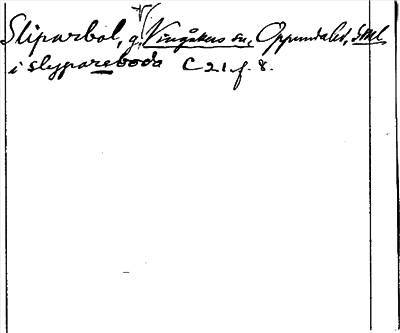 Sliparbol, g, V. Vingåkers sn, Oppundahd, Sml
i slypareboda C 21 f. 8.